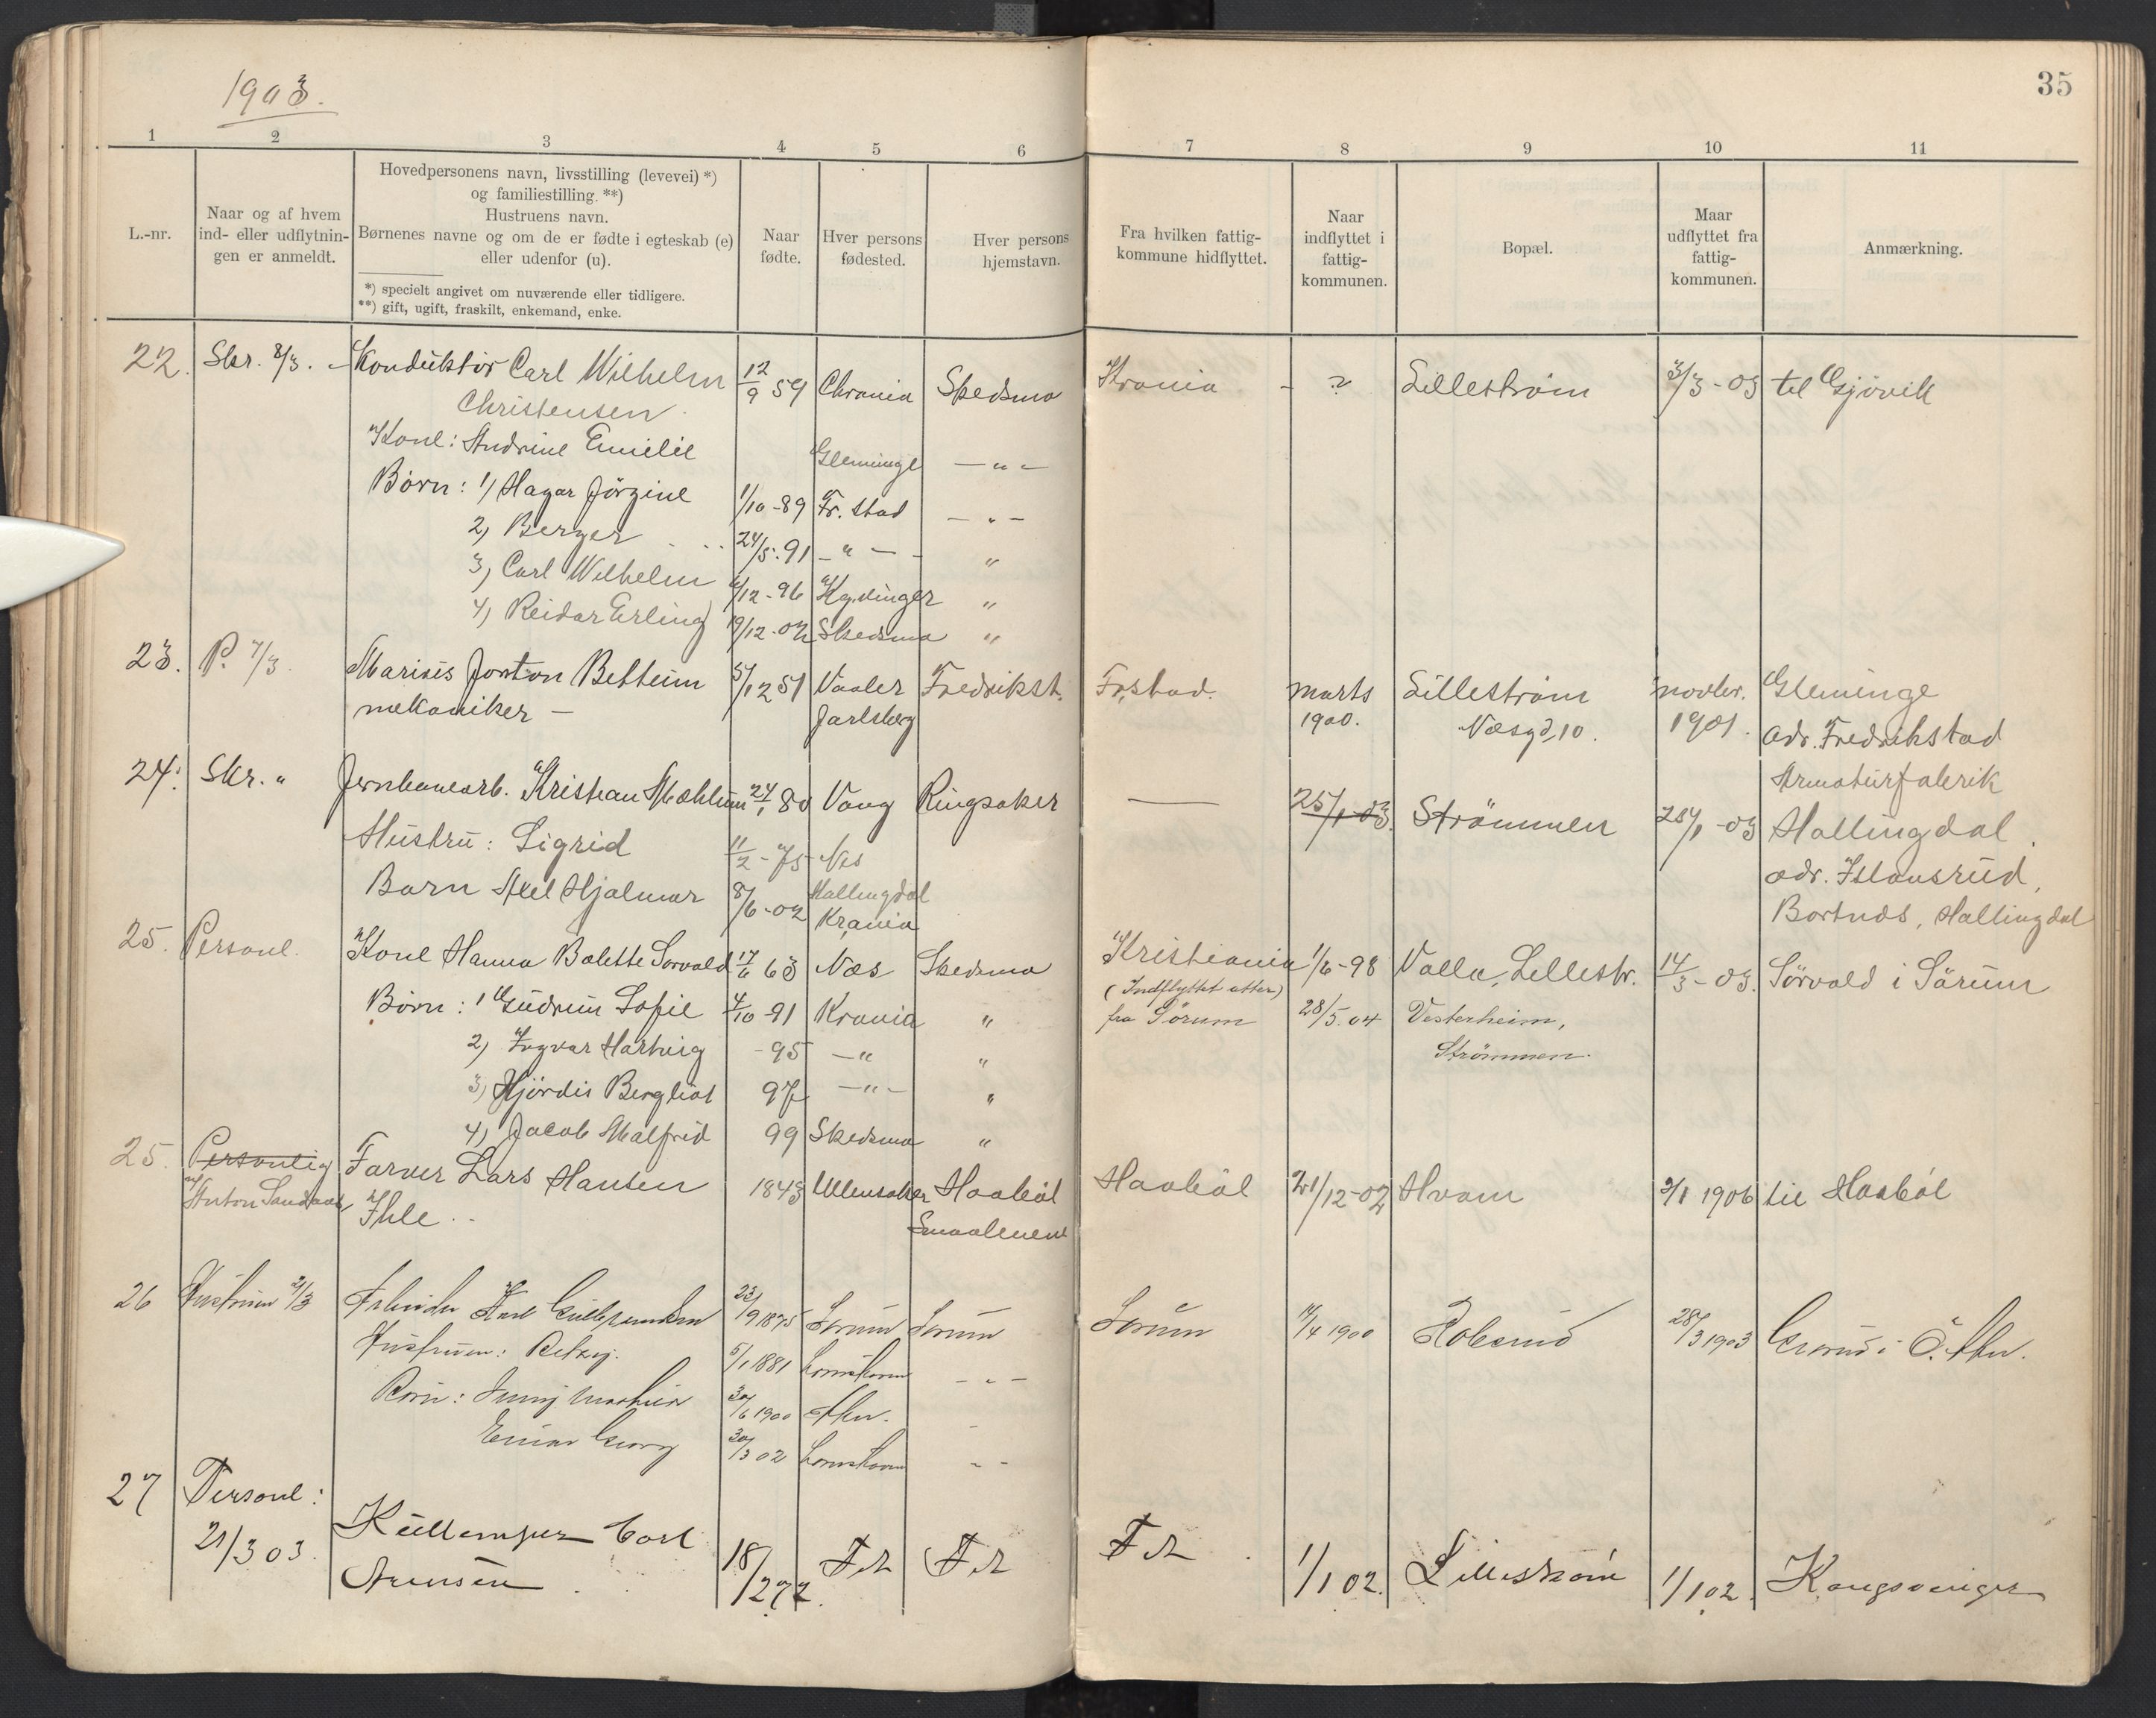 1903.
35
1 2 3 4 5 6 7 8 9 10 11
L.-nr.
Naar og af hvem
ind- eller udflytnin-
gen er anmeldt.
Hovedpersonens navn, livsstilling (levevei) *)
og familiestilling. **)
Hustruens navn.
Børnenes navne og om de er fødte i egteskab (e)
eller udenfor (u).
*) specielt angivet om nuværende eller tidligere.
**) gift, ugift, fraskilt, enkemand, enke.
Naar
fødte.
Hver persons
fødested.
Hver persons
hjemstavn.
Fra hvilken fattig-
kommune hidflyttet.
Naar
indflyttet i
fattig-
kommunen.
Bopæl.
Maar
udflyttet fra
fattig-
kommunen.
Anmærkning.
22. Skr. 8/3. Konduktør Carl Wilhelm 12/9 59 Chrania Skedsmo Krania - ? Lillestrøm 3/3-03 til Gjövik
Christensen
Kone: Andrine Emilie Glemminge — " —
Børn: 1) Hagar Jörgine 1/10-89 Fr. stad — " —
2) Berger 24/5.91 — " — "
3) Carl Wilhelm /12-96 Kgvinger "
4) Reidar Erling 19/12-02 Skedsmo "
23. P. 7/3. Marius Jonton Betheim 5/12 51 Vaaler Fredrikst. Fr.stad. marts Lillestrøm novbr. Gleminge
mekaniker — Jarlsberg 1900. Næsgd, 10. 1901. adr. Fredrikstad
Armaturfabrik
24. Skr. " Jernbanearb. Kristian Mæhlum 24/1 80 Vang Ringsaker — 25/1-03. Strömmen 25/1-03 Hallingdal.
Hustru: Sigrid 11/2-75 Nes adr. Islansrud,
Barn Axel Hjalmar 8/6-02 Hallingdal Bortnæs, Hallingdal
Krania
25. Personl. Kone Hanna Bolette Sorvald 17/6 63 Næs Skedsmo Kristiania 1/6-98 Valla, Lillestr. 14/3-03. Sörvald i Sörum
Børn: 1 Gudrun Sofie 4/10-91 Krania " (Indflyttet atter) fra Sörum 28/5.04 Vesterheim,
2) Ingvar Hartvig -95 — " " Strömmen.
3) Hjördis Bergliot 97 — " — "
4) Jacob Malfrid 99 Skedsmo "
25. Personlig Farver Lars Hansen 1843 Ullensaker Haabøl Haabøl 21/12-02 Hvam 2/1 1906 til Haabøl
Anton Ihle Smaalenene
26 Hustruen 21/3 Arbeider Karl Gulbrandsen 23/9 1875 Sørum Sørum Sørum 14/4 1900 28/3 1903 i Ö. Aker.
Hustruen: Betzy. 5/1 1881 Lørenskoven — " —
Børn: Jenny Mathea 30/6 1900 Aker.
Einar Georg 30/3 02 Lørenskoven - -
27 Personl: Kullemper Carl 18/12 72. Fr Fr Fr 1/1 02. Lillestrøm 1/1 02. Kongsvinger
21/3 03. Arensen